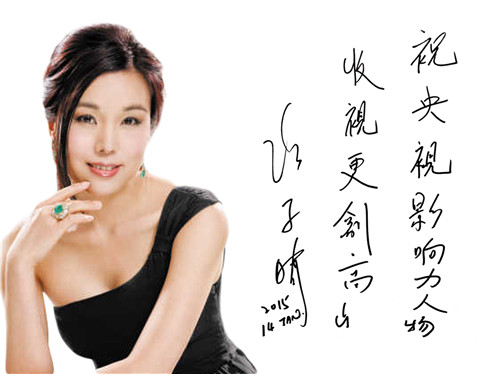 祝央視影响力人物
收視更創高山
子晴
2015
14 JAN.